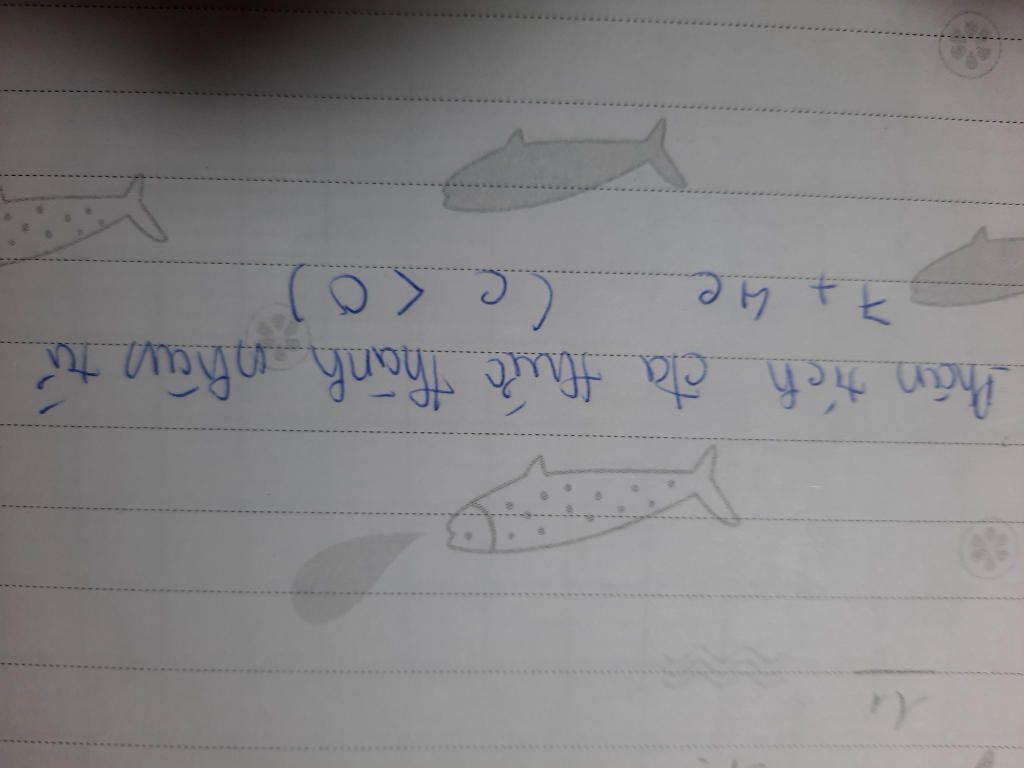 Phân tích đa thức thành nhân tử
7 + 4c (c < 0)